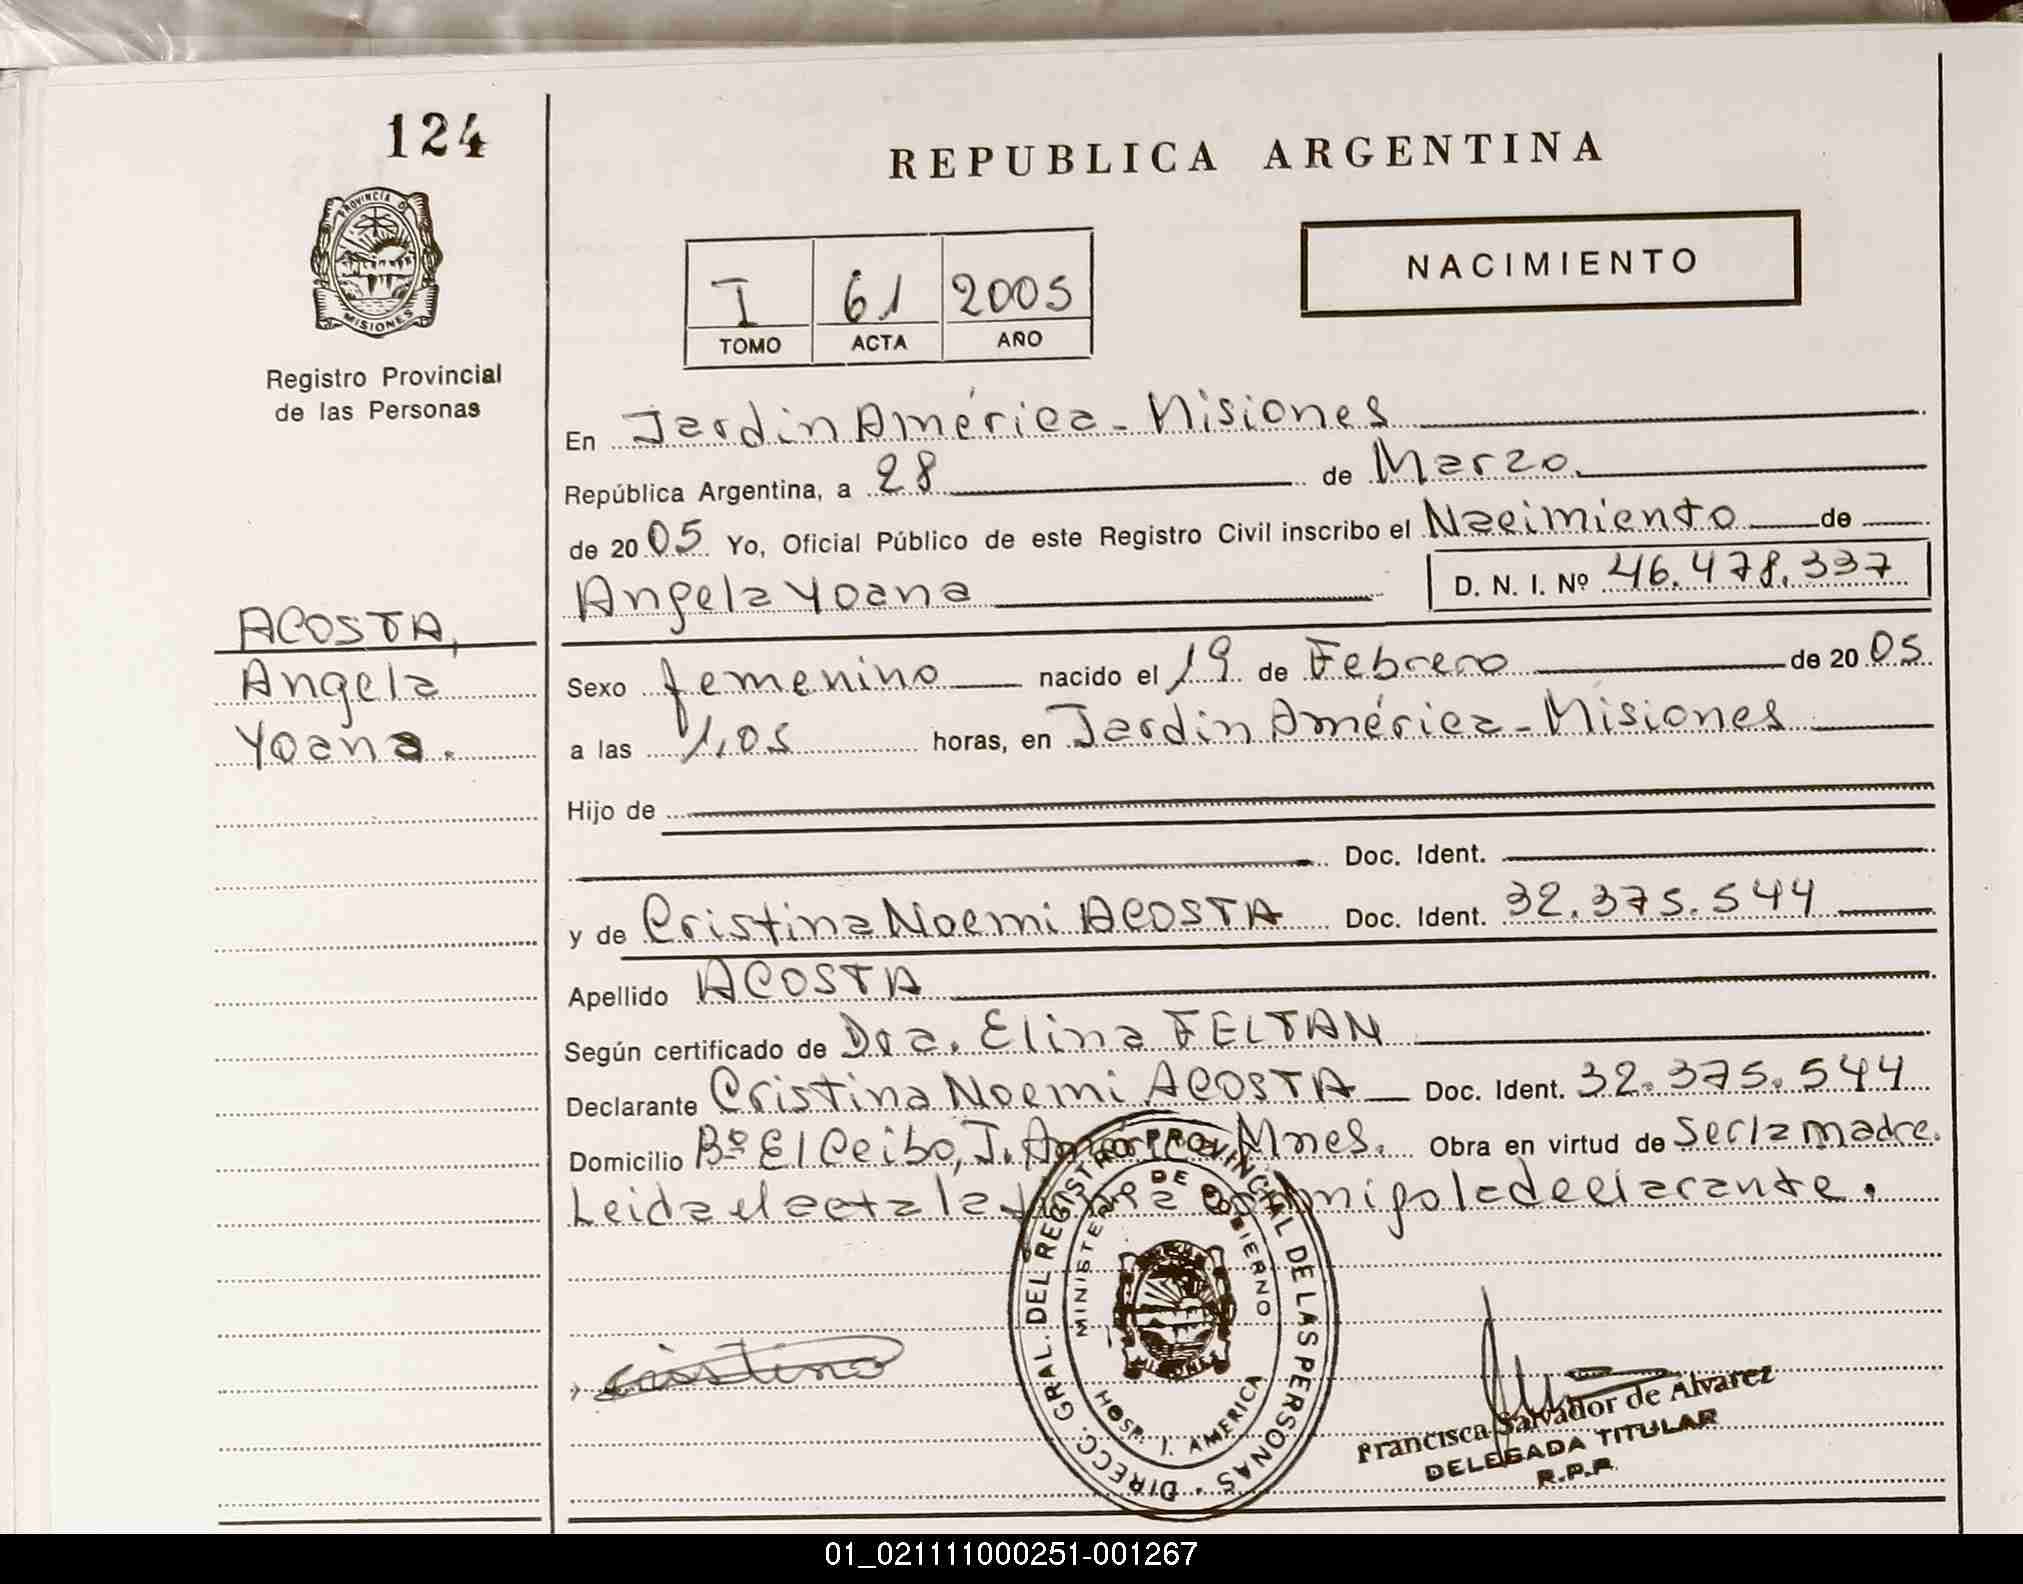 124
REPUBLICA ARGENTINA
NACIMIENTO
I 61 2005
TOMO ACTA AÑO
PROVINCIA D
MISIONES
Registro Provincial
de las Personas
En Jardin América - Misiones
República Argentina, a 28 de Marzo.
de 2005 Yo, Oficial Público de este Registro Civil inscribo el Nacimiento de
Angela Yoana D. N. I. Nº 46.478.337
ACOSTA,
Angela
Yoana.
Sexo femenino nacido el 19 de Febrero de 2005
a las 1,05 horas, en Jardin América - Misiones
Hijo de
Doc. Ident.
y de Cristina Noemi ACOSTA Doc. Ident. 32.375.544
Apellido ACOSTA
Según certificado de Dra. Elina FELTAN
Declarante Cristina Noemi ACOSTA Doc. Ident. 32.375.544
Domicilio Bº El Ceibo, J. América Mnes. Obra en virtud de Ser la madre.
Leida el acta la firma conmigo la declarante.
DIRECC. GRAL. DEL REGISTRO PROVINCIAL DE LAS PERSONAS
MINISTERIO DE GOBIERNO
HOSP. J. AMERICA
Cristina
Francisca Salvador de Alvarez
DELEGADA TITULAR
R.P.P.
01_021111000251-001267